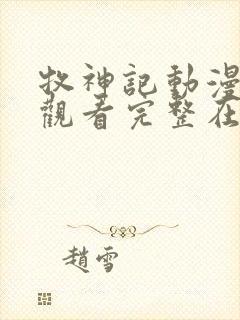 牧神記動漫
觀看完整在
趙雪